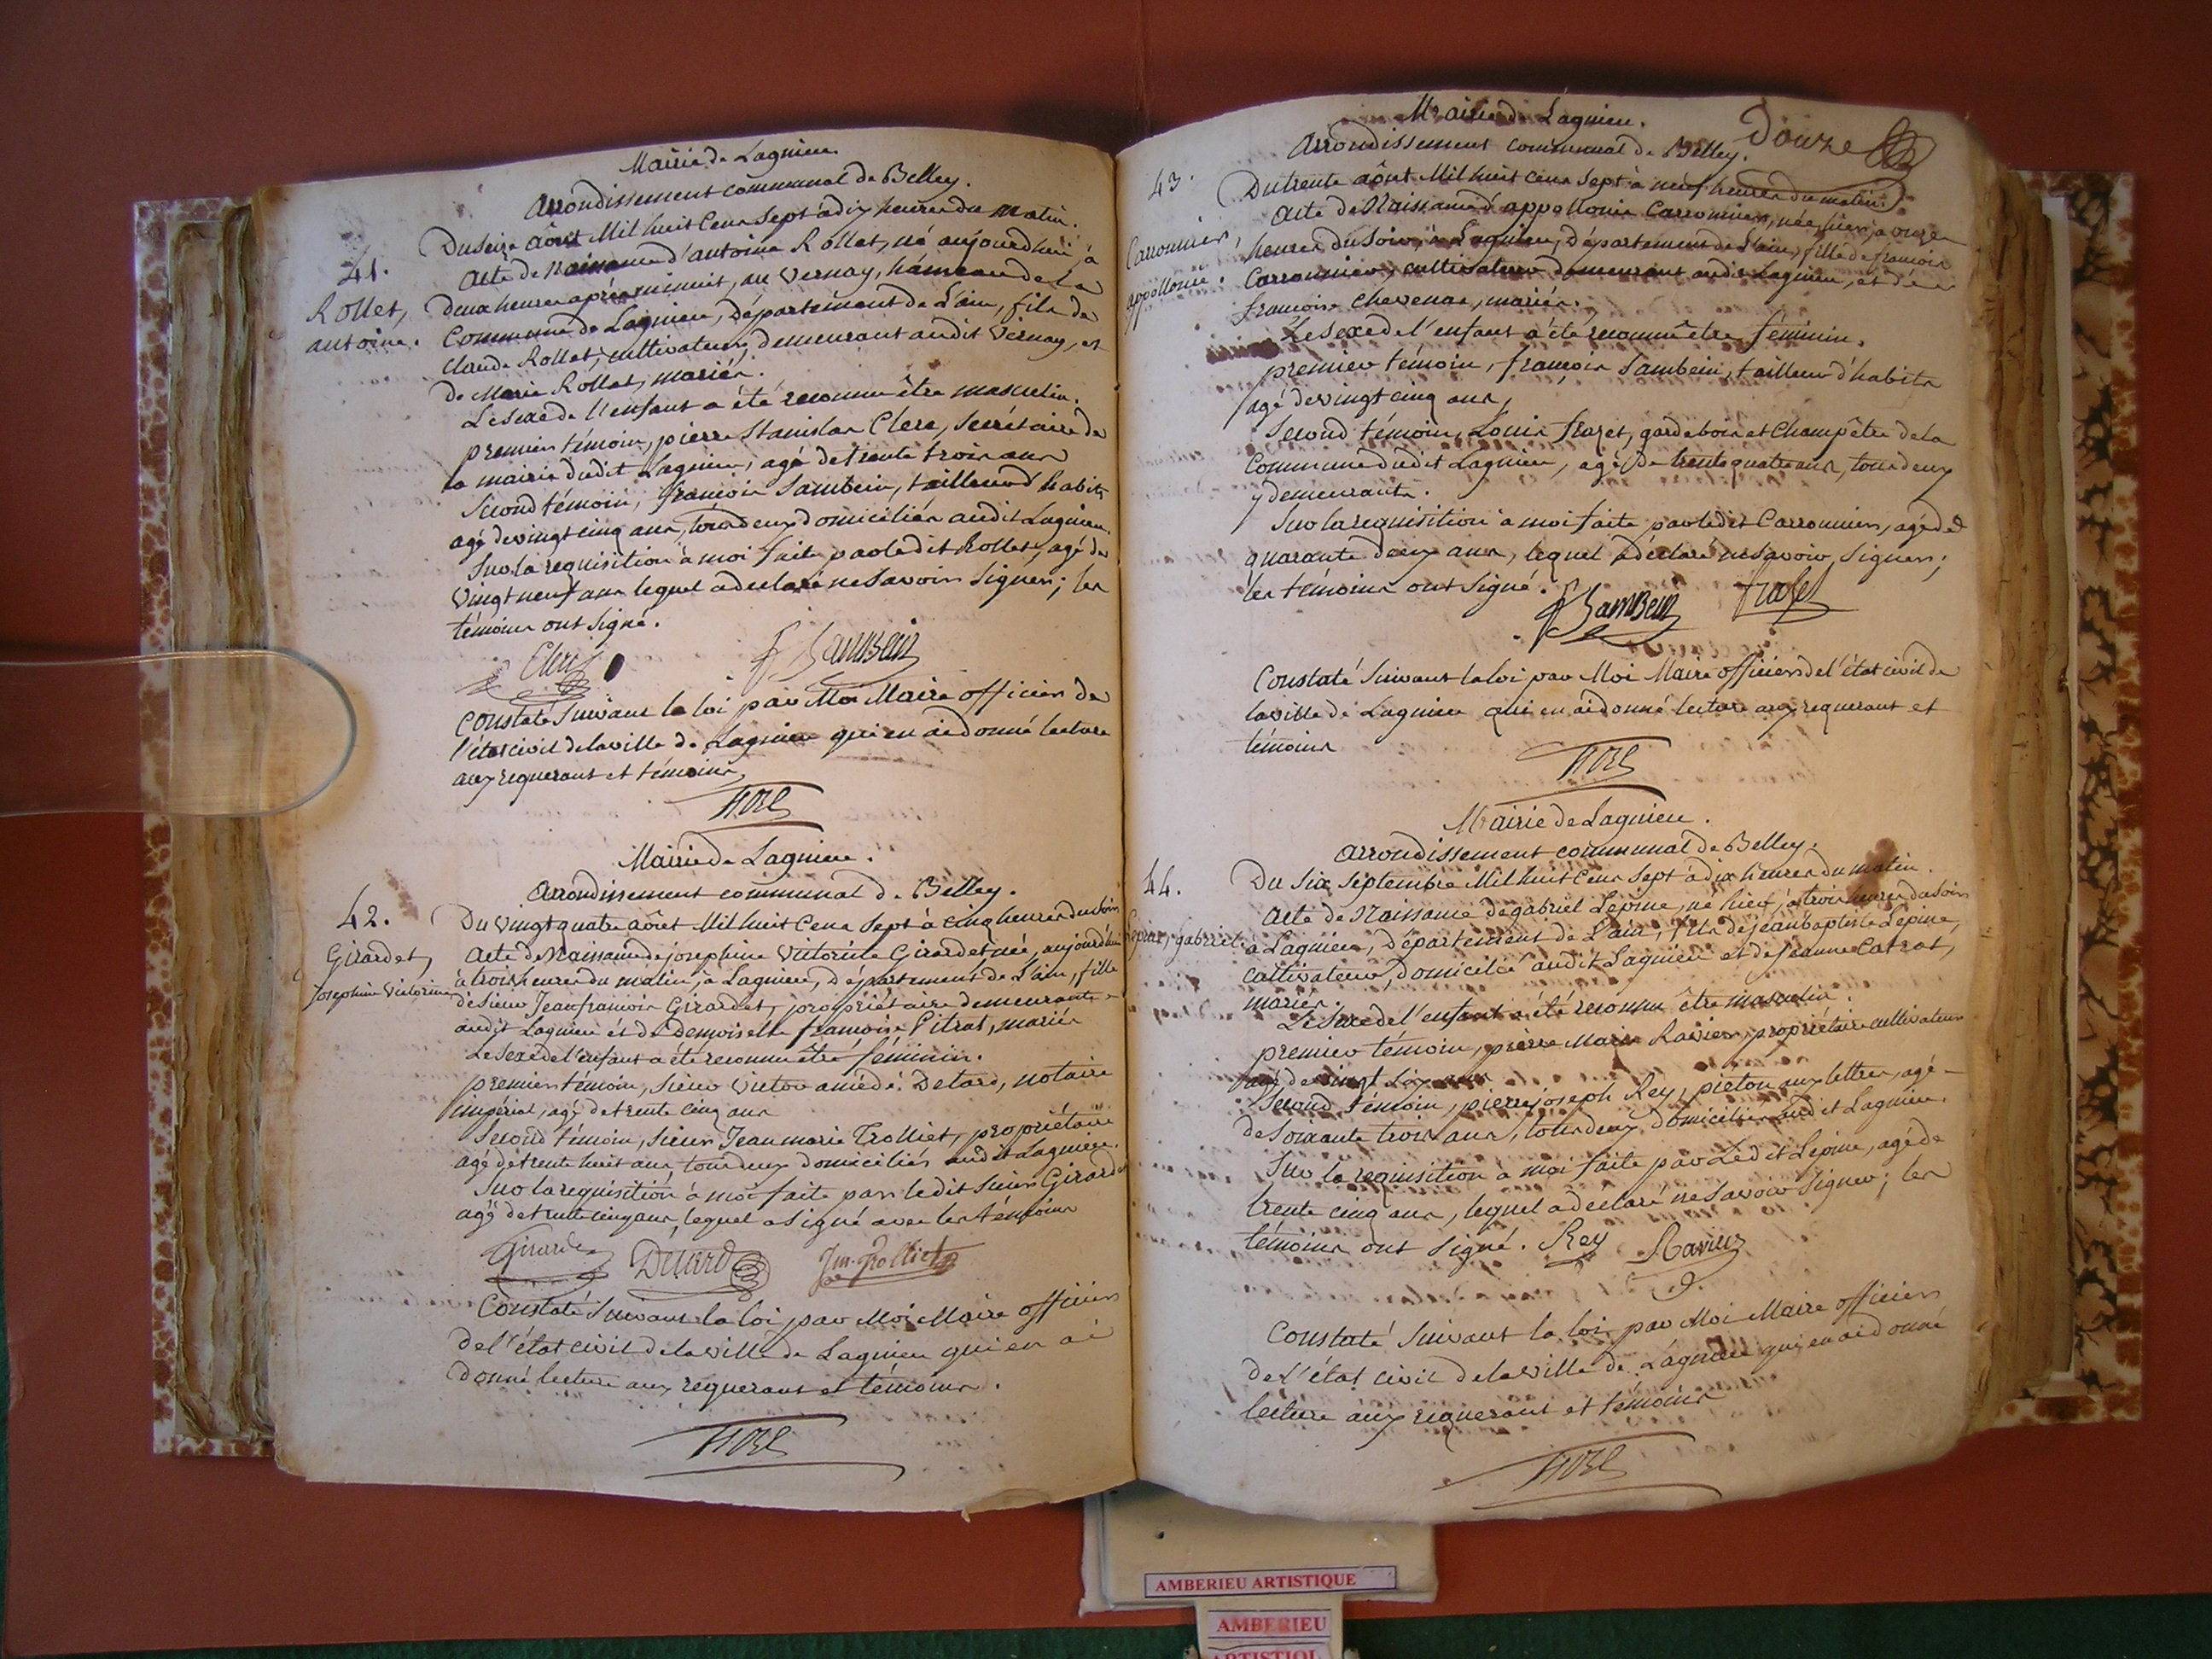 Mairie de Lagnieu.
Arrondissement communal de Belley.
Du seize Aôut Mil huit Cens Sept à dix heures du Matin.
41.
Rollet,
antoine.
Acte de Naissance d'antoine Rollet, né aujourd'hui à
deux heures après minuit, au Vernay, hâmeau de la
Commune de Lagnieu, Département de L'ain, fils de
claude Rollet, cultivateur, demeurant audit Vernay, et
de Marie Rollet, mariés.
Le sexe de l'enfant a été reconnu être masculin.
premier témoin, pierre Stanislas Clerc, Secrétaire de
la mairie dudit Lagnieu, agé de trente trois ans
Second témoin, françois Sambein, tailleur d'habits
agé de vingt cinq ans, tous deux domiciliés audit Lagnieu.
Sur la requisition à moi faite par ledit Rollet, agé de
vingt neuf ans lequel a declaré ne savoir signer; les
témoins ont signé.
Clerc f Sambein
Constaté Suivant la loi par Moi Maire officier de
l'état civil de la ville de Lagnieu qui en ai donné lecture
aux requerant et témoins,
Mairie de Lagnieu.
Arrondissement communal de Belley.
42.
Girardet,
Josephine Victorine
Du vingt quatre aôut Mil huit Cens Sept à cinq heures du soir
Acte de Naissance de josephine Victorine Girardet née, aujourd'hui
à trois heures du matin, à Lagnieu, Département de L'ain, fille
de sieur Jean françois Girardet, propriétaire demeurant
audit Lagnieu et de Demoiselle françoise Pitrat, mariés
Le sexe de l'enfant a été reconnu être féminin.
premier témoin, sieur Victor amédé Detard, notaire
impérial, agé de trente cinq ans
Second témoin, sieur Jean marie Trolliet, propriétaire
agé de trente huit ans, tous deux domiciliés audit Lagnieu.
Sur la requisition à moi faite par ledit sieur Girardet
agé de trente cinq ans, lequel a signé avec les témoins
Girardet Detard Jm. Trolliet
Constaté Suivant la loi par Moi Maire officier
de l'état civil de la ville de Lagnieu qui en ai
donné lecture aux requerant et témoins.
Mairie de Lagnieu.
Douze
Arrondissement communal de Belley.
43.
Carronnier,
appollonie.
Du trente aôut Mil huit cens sept à neuf heures du matin.
Acte de Naissance d'appollonie Carronnier, née hier, à onze
heures du soir, à Lagnieu, Département de L'ain, fille de françois
Carronnier, cultivateur demeurant audit Lagnieu, et de
françoise Chevenas, mariés.
Le sexe de l'enfant a été reconnu être féminin.
premier témoin, françois Sambein, tailleur d'habits
agé de vingt cinq ans,
Second témoin, Louis frazet, garde bois et Champêtre de la
Commune dudit Lagnieu, agé de trente quatre ans, tous deux
y demeurants.
Sur la requisition à moi faite par ledit Carronnier, agé de
quarante deux ans, lequel a déclaré ne savoir signer;
les témoins ont signé.
f Sambein frazet
Constaté Suivant la loi par Moi Maire officier de l'état civil de
la ville de Lagnieu qui en ai donné lecture aux requerant et
témoins
Mairie de Lagnieu.
Arrondissement communal de Belley.
44.
Lepine, gabriel.
Du Six Septembre Mil huit Cens Sept à dix heures du matin.
Acte de Naissance de gabriel Lepine, né hier, à trois heures du soir
à Lagnieu, Département de L'ain, fils de jean baptiste Lepine,
cultivateur, domicilié audit Lagnieu et de jeanne Catrat,
mariés.
Le sexe de l'enfant a été reconnu être masculin.
premier témoin, pierre Marie Ravier, propriétaire cultivateur
agé de vingt six ans
Second témoin, pierre joseph Rey, pieton aux lettres, agé
de soixante trois ans, tous deux domiciliés audit Lagnieu.
Sur la requisition à moi faite par Ledit Lepine, agé de
trente cinq ans, lequel a declaré ne savoir signer; les
témoins ont signé. Rey Ravier
Constaté Suivant la loi par Moi Maire officier
de l'état civil de la ville de Lagnieu qui en ai donné
lecture aux requerant et témoins
AMBERIEU ARTISTIQUE
AMBERIEU
ARTISTIQU